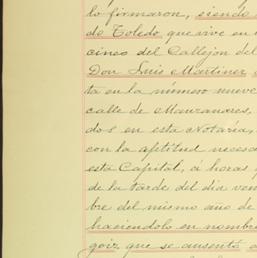 lo firmaron, siendo
de Toledo que vive en
cinco del Callejon del
Don Luis Martinez
ta en la número nueve
calle de Manzanares,
dos en esta Notaría,
con la aptitud necesa
esta Capital, á horas
de la tarde del dia vein
bre del mismo año de
haciendolo en nombre
goiz que se ausentó